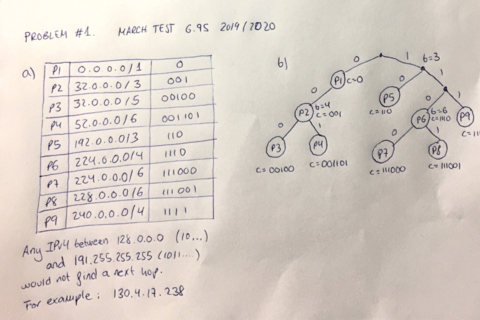 PROBLEM #1. MARCH TEST 6.9S 2019/2020
a)
P1 0.0.0.0/1 0
P2 32.0.0.0/3 001
P3 32.0.0.0/5 00100
P4 52.0.0.0/6 001101
P5 192.0.0.0/3 110
P6 224.0.0.0/4 1110
P7 224.0.0.0/6 111000
P8 228.0.0.0/6 111001
P9 240.0.0.0/4 1111
Any IPv4 between 128.0.0.0 (10...)
and 191.255.255.255 (1011...)
would not find a next hop.
For example: 130.4.17.238
b)
0 1 b=3
P1 c=0
0 0 1
P2 b=4 c=001
P5 c=110
0 1
P6 b=6 c=1110
P9
0 1
P3 c=00100
P4 c=001101
0 1
P7 c=111000
P8 c=111001